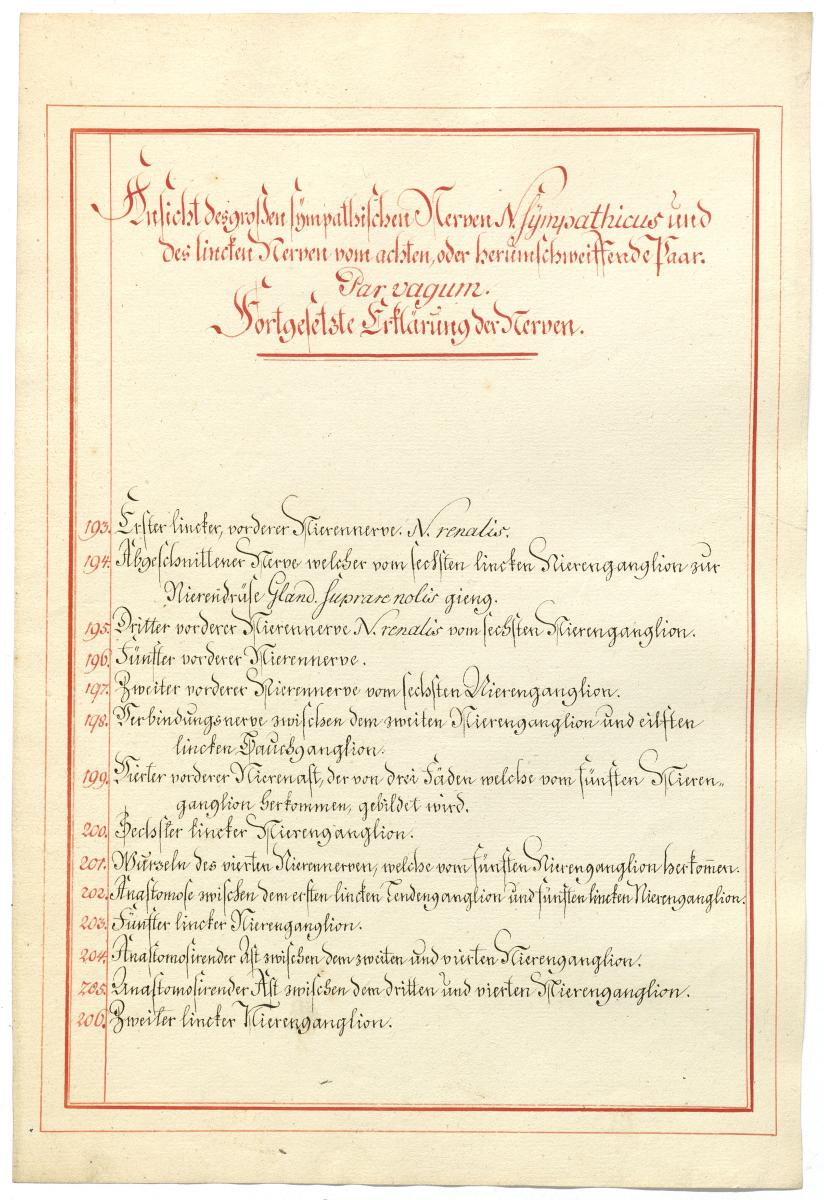 Ansicht des großen sympathischen Nerven N. Sympathicus und
des lincken Nerven vom achten, oder herumschweiffende Paar.
Par vagum.
Fortgesetzte Erklärung der Nerven.
193. Erster lincker, vorderer Nierennerve. N. renalis.
194. Abgeschnittener Nerve welcher vom sechsten lincken Nierenganglion zur
Nierendrüse Gland. Suprarenolis gieng.
195. Dritter vorderer Nierennerve N. renalis vom sechsten Nierenganglion.
196. Fünfter vorderer Nierennerve.
197. Zweiter vorderer Nierennerve vom sechsten Nierenganglion.
198. Verbindungsnerve zwischen dem zweiten Nierenganglion und eilften
lincken Bauchganglion.
199. Vierter vorderer Nierenast, der von drei Fäden welche vom fünften Nieren„
ganglion herkommen, gebildet wird.
200. Sechster lincker Nierenganglion.
201. Wurzeln des vierten Nierennerven, welche vom fünften Nierenganglion herkom̅en.
202. Anastomose zwischen dem ersten lincken Lendenganglion und fünften lincken Nierenganglion.
203. Fünfter lincker Nierenganglion.
204. Anastomosirender Ast zwischen dem zweiten und vierten Nierenganglion.
205. Anastomosirender Ast zwischen dem dritten und vierten Nierenganglion.
206. Zweiter lincker Nierenganglion.